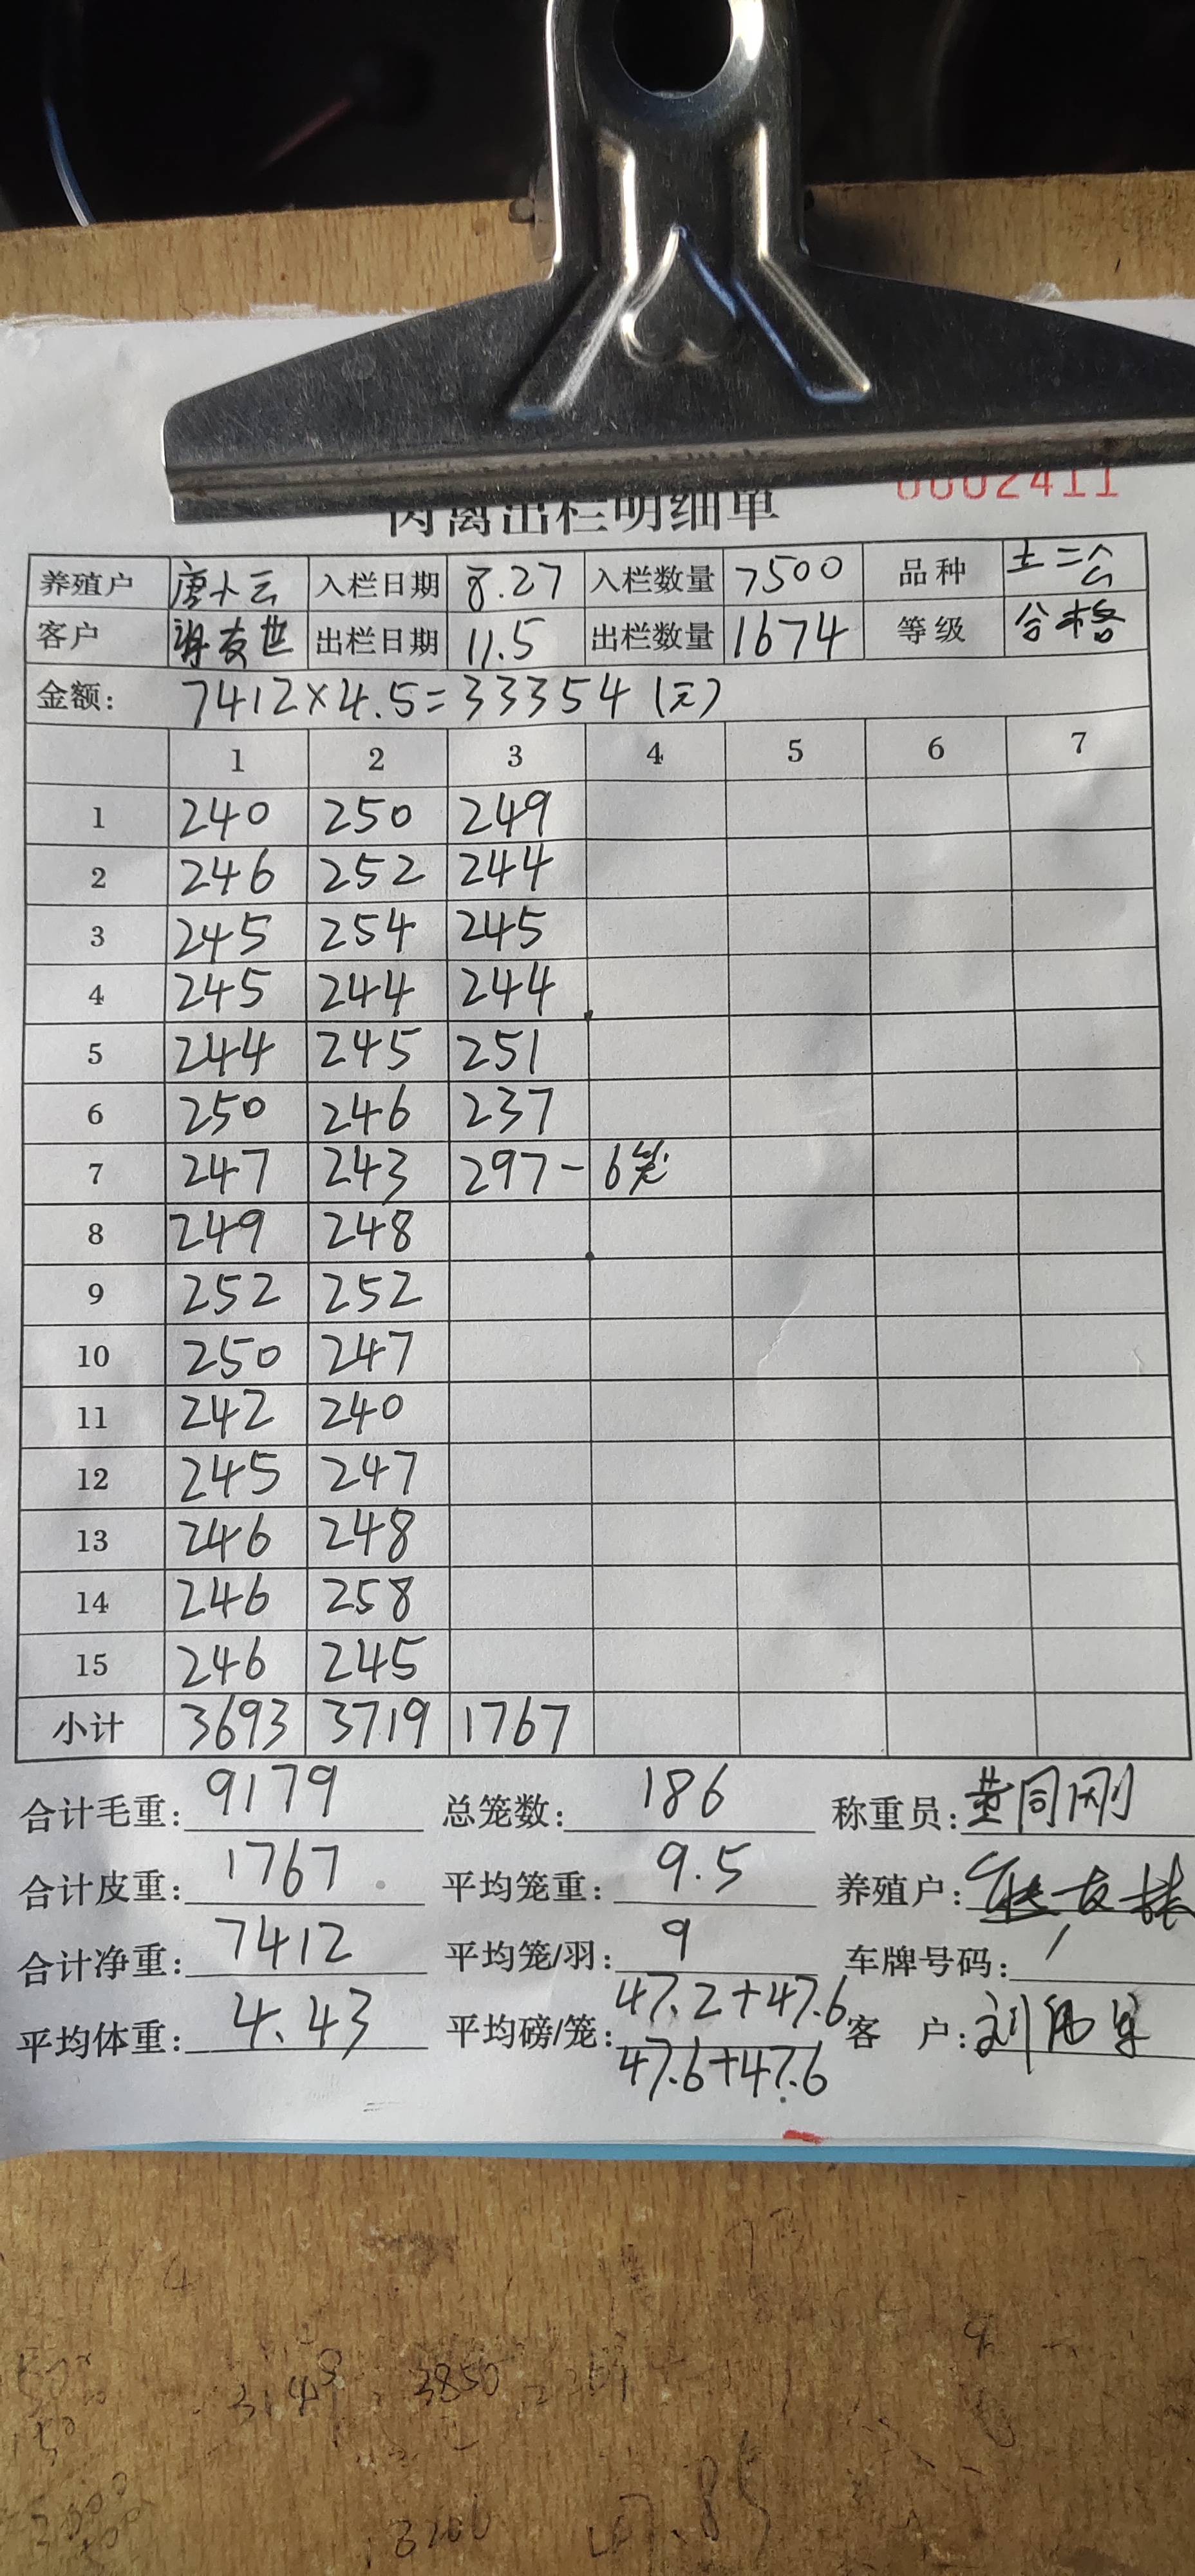 0002411
肉禽出栏明细单
养殖户 唐小云 入栏日期 8.27 入栏数量 7500 品种 土二公
客户 谢友世 出栏日期 11.5 出栏数量 1674 等级 合格
金额: 7412×4.5=33354(元)
1 2 3 4 5 6 7
1 240 250 249
2 246 252 244
3 245 254 245
4 245 244 244
5 244 245 251
6 250 246 237
7 247 243 297-6笼
8 249 248
9 252 252
10 250 247
11 242 240
12 245 247
13 246 248
14 246 258
15 246 245
小计 3693 3719 1767
合计毛重: 9179 总笼数: 186 称重员: 黄同刚
合计皮重: 1767 平均笼重: 9.5 养殖户:
合计净重: 7412 平均笼/羽: 9 车牌号码: /
平均体重: 4.43 平均磅/笼: 47.2+47.6 客户:
47.6+47.6
3850
3200